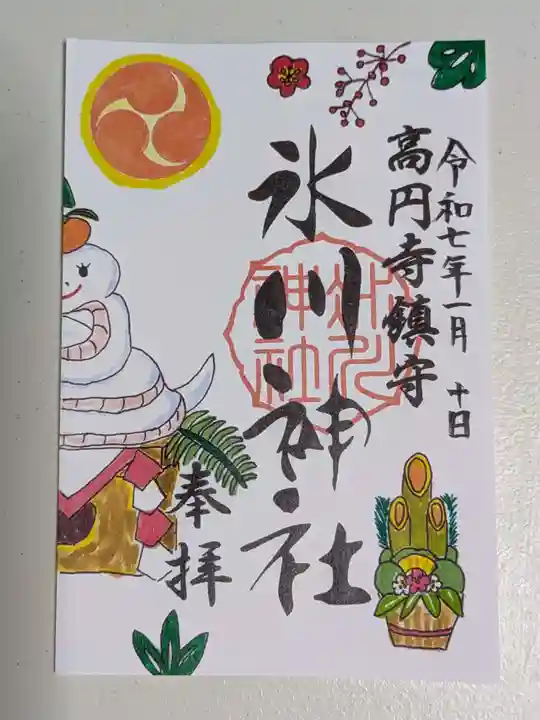 令和七年一月十日
高円寺鎮守
氷川神社
氷川
神社
奉拝